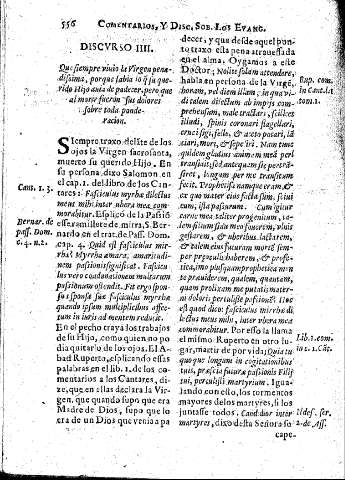 556
COMENTARIOS, Y DISC. SOB. LOS EVANG.
DISCVRSO IIII.
Que siempre viuio la Virgen penadissima,
porque sabia lo que
rido Hijo auia de padecer, pero que
al morir fueron sus dolores
sobre toda ponderacion.
SIempre traxo delāte de los
ojos la Virgen sacrosanta,
muerto su querido Hijo. En
su persona, dixo Salomon en
el cap. 1. del libro de los Cantares:
Fasciculus myrrhæ dilectus
meus mihi inter vbera mea commorabitur.
Cant. 1. 3.
Explicò de la Passiō
esse ramillete de mirra, S. Bernardo
en el trat. de Pass. Dom.
cap. 4. Quid est fasciculus mirrhæ?
Bernar. de
pass. Dom.
c. 4. n. 2.
Myrrha amara, amaritudinem
passionis significat. Fasciculus
vero coadunationem multarum
passionum ostendit. Fit ergo sponsus
sponsæ suæ fasciculus myrrhæ
quando ipsum multiplicibus affectum
in iuriis ad mentem reducit.
En el pecho trayà los trabajos
de su Hijo, como quien no podia
quitarlo de los ojos. El Abad
Ruperto, explicando essas
palabras en el lib. 1. de los comentarios
a los Cantares, dize,
que en allas declara la Virgen,
que quando supo que era
Madre de Dios, supo que lo
era de un Dios que venia a padecer,
y que desde aquel punto
traxo ella pena atrauessada
en el alma. Oygamos a este
Doctor: Nolite solam attendere,
habla en persona de la Virgē,
horam, vel diem illam, in qua vidi
Rup. com.
in Cant. li.
tom. 1.
talem dilectum ab impijs comprehensum,
male tractari, scilicet
illudi, spinis coronari flagellari,
cruci figi, felle, & aceto potari, lāciari,
mori, & sepeliri. Nam tunc
quidem gladius animam meā pertransiuit,
sed antequam sic pertransiret,
longam per me transitum
fecit. Prophetissa namque eram, &
ex quo mater eius facta sum, scíui
eum, ista passurum. Cum igitur
carne mea taliter progenitum, talem
filium sinu meo fouerem, vlnis
gestarem, & vberibus lactarem,
& talem eius futuram mortē semper
præ oculis haberem, & prophetica,
imo plusquam prophetica mēte
præuiderem, qualem, quantam,
quam prolixam me putatis materni
doloris pertulisse passionē? Hoc
est quod dico: fasciculus mirrhæ dilectus
meus mihi, inter vbera mea
commorabitur. Por esso la llama
el mismo Ruperto en otro lugar,
Lib. 1. com.
in c. 1. Cāt.
martir de por vida; Quia tu
quoque longum in cogitationibus
tuis, præscia futuræ passionis Filij
tui, pertulisti martyrium. Igualando
con esto, los tormentos
mayores de los martyres, si los
juntasse todos. Candidior inter
martyres, dixo desta Señora su
Ildef. ser.
2. de Ass.
cape-